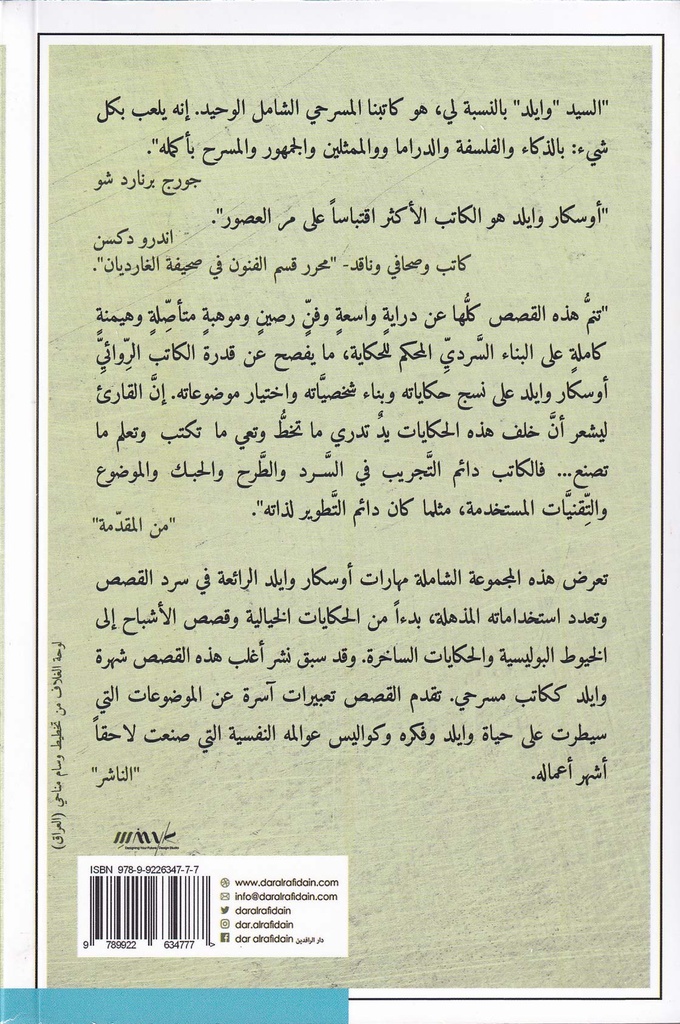 "السيد "وايلد" بالنسبة لي، هو كاتبنا المسرحي الشامل الوحيد. إنه يلعب بكل
شيء: بالذكاء والفلسفة والدراما ووالممثلين والجمهور والمسرح بأكمله".
جورج برنارد شو
"أوسكار وايلد هو الكاتب الأكثر اقتباساً على مر العصور".
اندرو دكسن
كاتب وصحافي وناقد- "محرر قسم الفنون في صحيفة الغارديان".
"تنمُّ هذه القصص كلُّها عن درايةٍ واسعةٍ وفنٍّ رصينٍ وموهبةٍ متأصِّلةٍ وهيمنةٍ
كاملةٍ على البناء السَّرديِّ المحكم للحكاية، ما يفصح عن قدرة الكاتب الرِّوائيِّ
أوسكار وايلد على نسج حكاياته وبناء شخصيَّاته واختيار موضوعاته. إنَّ القارئ
ليشعر أنَّ خلف هذه الحكايات يدٌ تدري ما تخطُّ وتعي ما تكتب وتعلم ما
تصنع... فالكاتب دائم التَّجريب في السَّرد والطَّرح والحبك والموضوع
والتِّقنيَّات المستخدمة، مثلما كان دائم التَّطوير لذاته".
"من المقدّمة"
تعرض هذه المجموعة الشاملة مهارات أوسكار وايلد الرائعة في سرد القصص
وتعدد استخداماته المذهلة، بدءاً من الحكايات الخيالية وقصص الأشباح إلى
الخيوط البوليسية والحكايات الساخرة. وقد سبق نشر أغلب هذه القصص شهرة
وايلد ككاتب مسرحي. تقدم القصص تعبيرات آسرة عن الموضوعات التي
سيطرت على حياة وايلد وفكره وكواليس عوالمه النفسية التي صنعت لاحقاً
أشهر أعماله.
"الناشر"
لوحة الغلاف من تخطيط وسام مناحي (العراق)
ISBN 978-9-9226347-7-7
9 789922 634777 >
www.daralrafidain.com
info@daralrafidain.com
daralrafidain
dar.alrafidain
dar alrafidain دار الرافدين